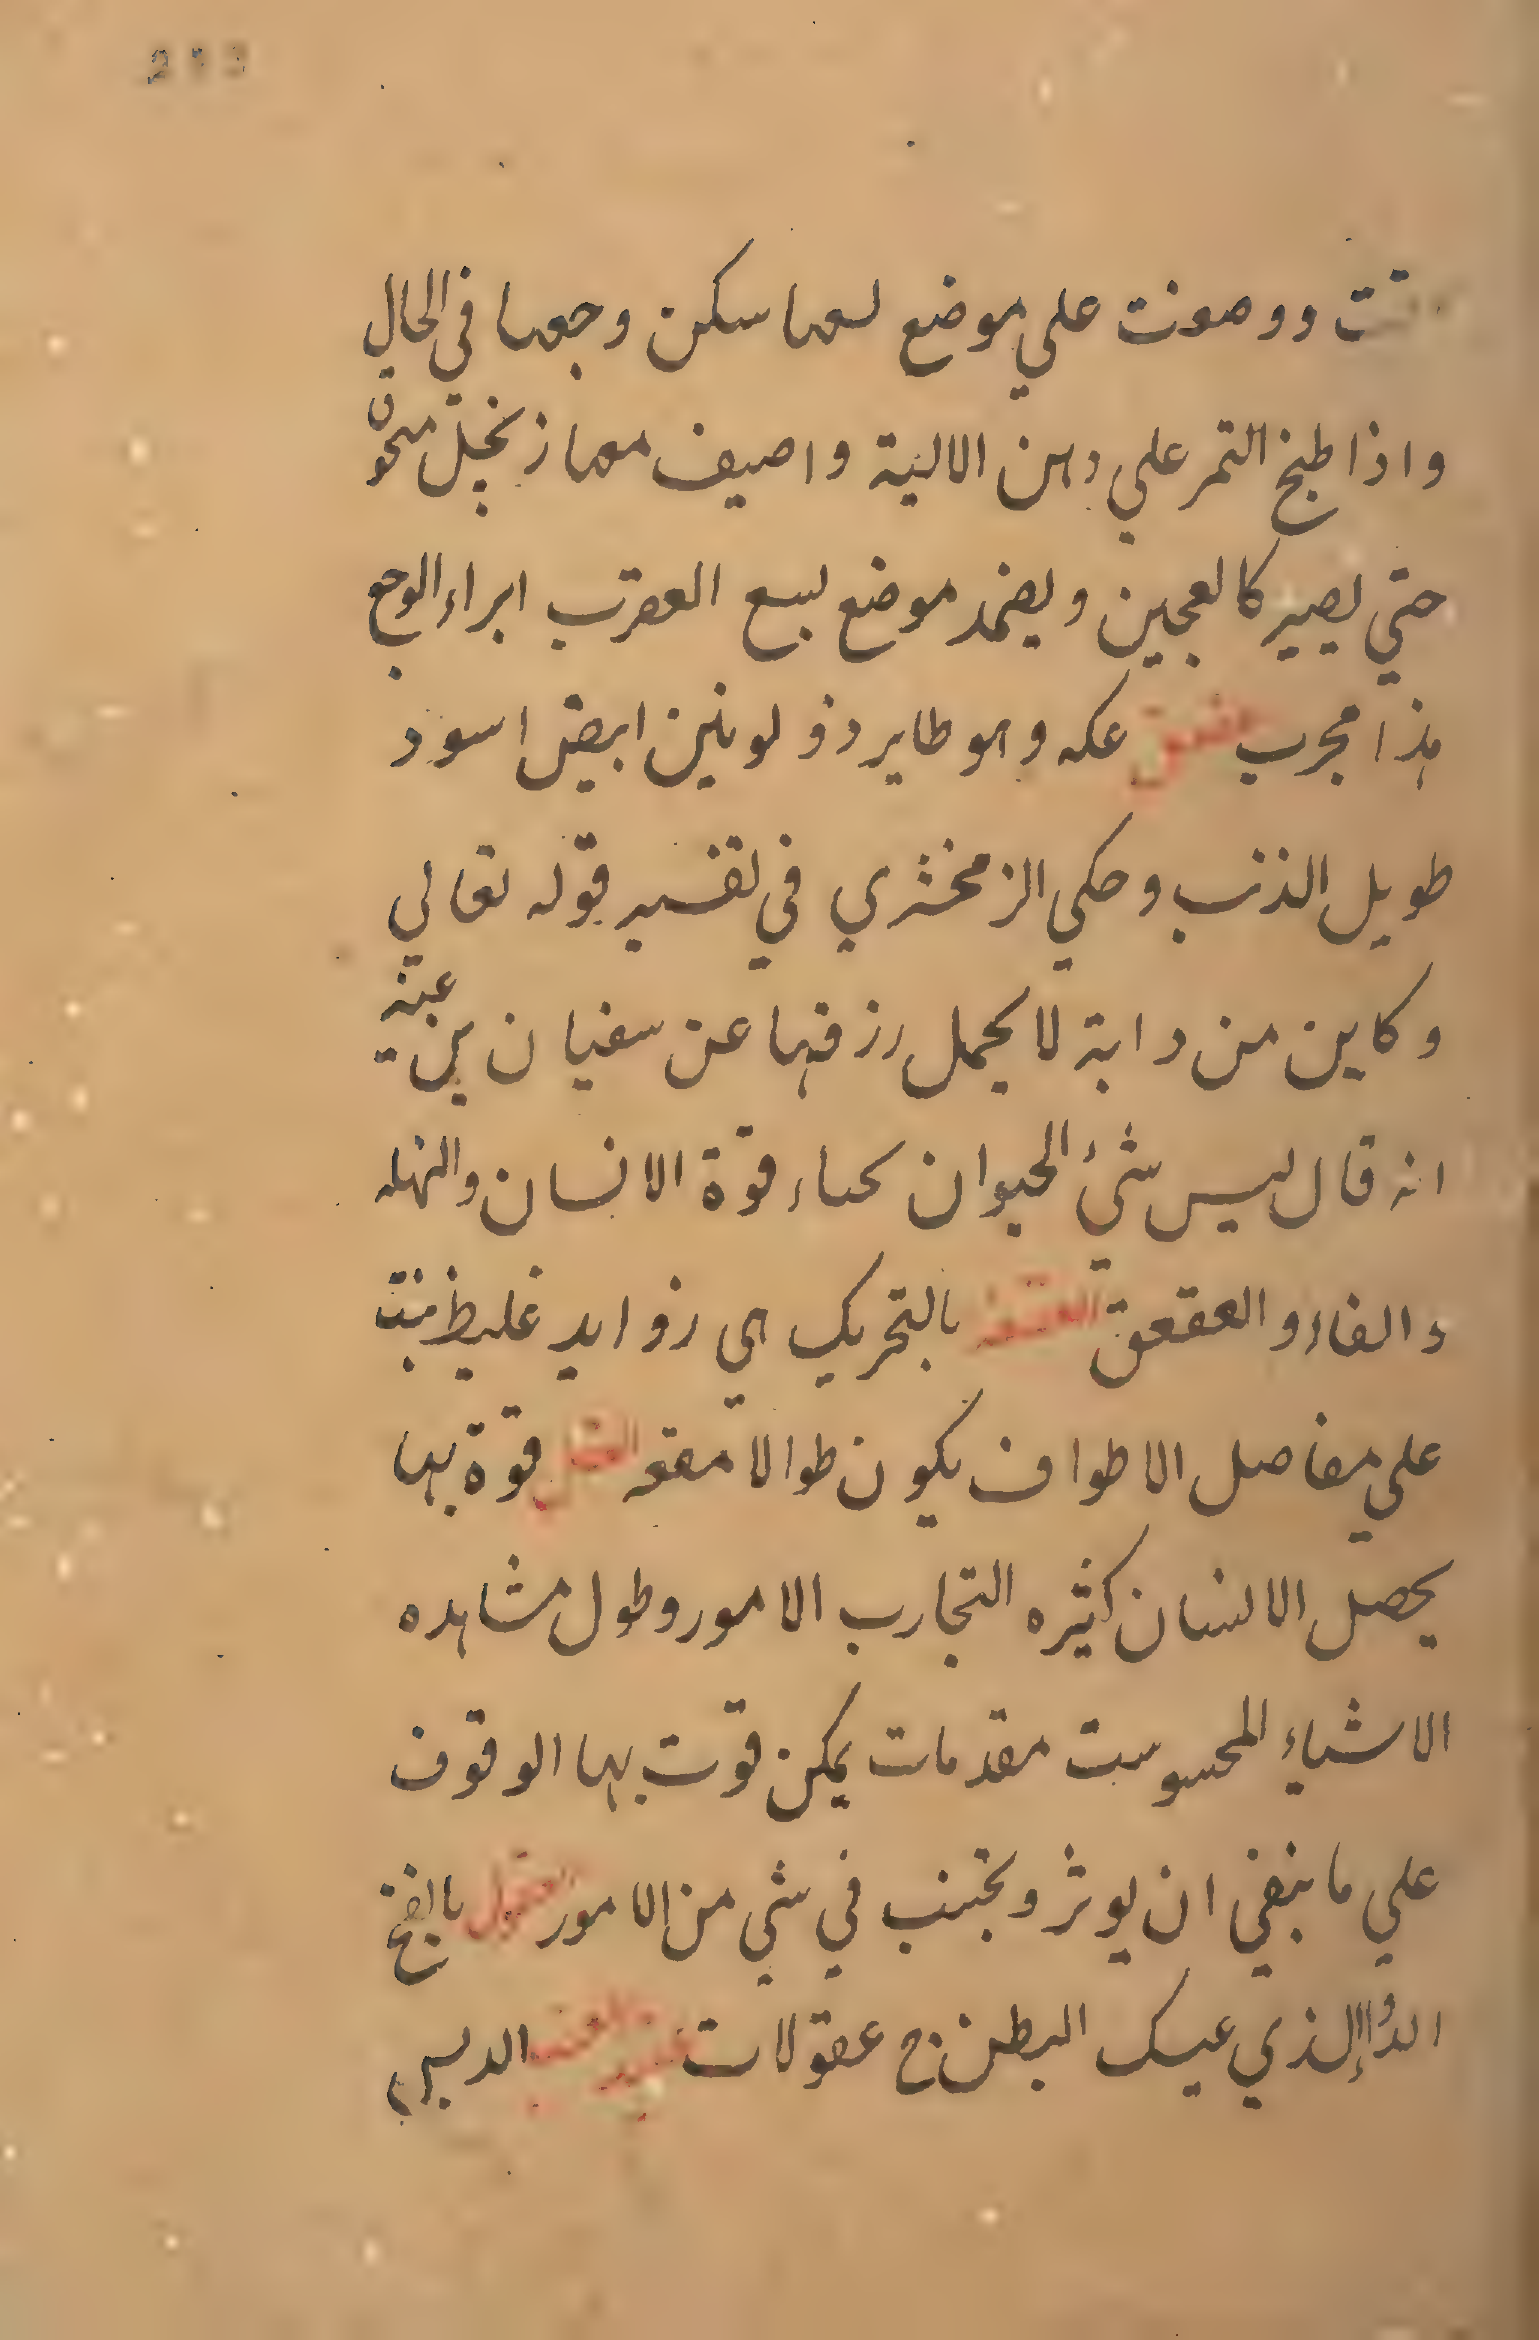 ووضعت علي موضع لسعها سكن وجعها في الحال
واذا طبخ التمر علي دهن الالية واضيف معها زنجبل مسحوق
حتي يصير كالعجين ويضمد موضع لسع العقرب ابراء الوجع
هذا مجرب عقعق عكه وهو طاير ذو لونين ابيض اسود
طويل الذنب وحكي الزمخشري في تفسير قوله تعالي
وكاين من دابة لا يحمل رزقها عن سفيان بن عينه
انه قال ليس شئ الحيوان قوة الانسان والنمله
والفار والعقعق العقده بالتحريك هي زوايد غليظ تنبت
علي مفاصل الاطراف يكون طوالا معقه العقل قوة بها
يحصل الانسان كثيره التجارب الامور وطول مشاهده
الاشياء المحسوست مقدمات يمكن قوت بها الوقوف
علي ما ينبغي ان يوثر ويجتنب في شي من الامور العقول بالفتح
الدوا الذي يمسك البطن ج عقولات